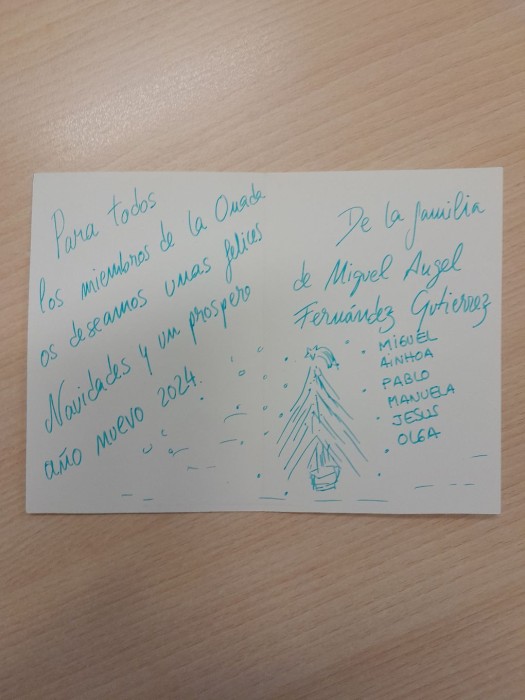 Para todos
los miembros de la Onada
os deseamos unas felices
Navidades y un prospero
año nuevo 2024.
De la familia
de Miguel Angel
Fernández Gutierrez
MIGUEL
AINHOA
PABLO
MANUELA
JESUS
OLGA